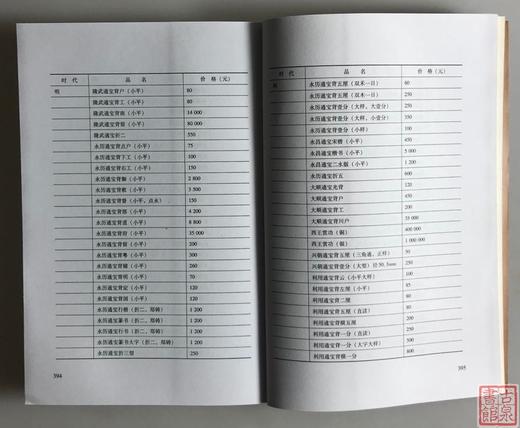 时代 品名 价格（元）
明 隆武通宝背户（小平） 80
隆武通宝背工（小平） 80
隆武通宝背南（小平） 14 000
隆武通宝背留（小平） 80 000
隆武通宝折二 550
永历通宝背点户（小平） 75
永历通宝背下工（小平） 150
永历通宝背右工（小平） 150
永历通宝背御（小平） 2 800
永历通宝背敕（小平） 3 500
永历通宝背督（小平，点永） 150
永历通宝背部（小平） 4 200
永历通宝背道（小平） 8 800
永历通宝背府（小平） 35 000
永历通宝背留（小平） 200
永历通宝背粤（小平） 300
永历通宝背辅（小平） 260
永历通宝背明（小平） 70
永历通宝背定（小平） 120
永历通宝背国（小平） 120
永历通宝行楷（折二，郑铸） 1 200
永历通宝篆书（折二，郑铸） 200
永历通宝行书（折二，郑铸） 1 200
永历通宝篆书大字（折二，郑铸） 1 200
永历通宝折三型 250
394
时代 品名 价格（元）
明 永历通宝背五厘（双禾一日） 60
永历通宝背五厘（双木一日） 250
永历通宝背壹分（大样，大壹分） 250
永历通宝背壹分（大样，小壹分） 350
永历通宝背壹分（小样） 100
永昌通宝宋楷（小平） 450
永昌通宝楷书（小平） 5 000
永昌通宝二水版（小平） 1 200
永昌通宝折五 600
大顺通宝光背 120
大顺通宝背户 450
大顺通宝背工 200
大顺通宝背川户 35 000
西王赏功（铜） 400 000
西王赏功（银） 1 000 000
兴朝通宝背五厘（三角通，正样） 50
兴朝通宝背壹分（大型）径50.5mm 250
利用通宝背云（小平大样） 100
利用通宝背左厘（小平） 85
利用通宝背二厘 80
利用通宝背五厘（直读） 210
利用通宝背横五厘 200
利用通宝背一分（直读） 250
利用通宝背一分（大字大样） 380
利用通宝背横一分 800
395
古泉書館